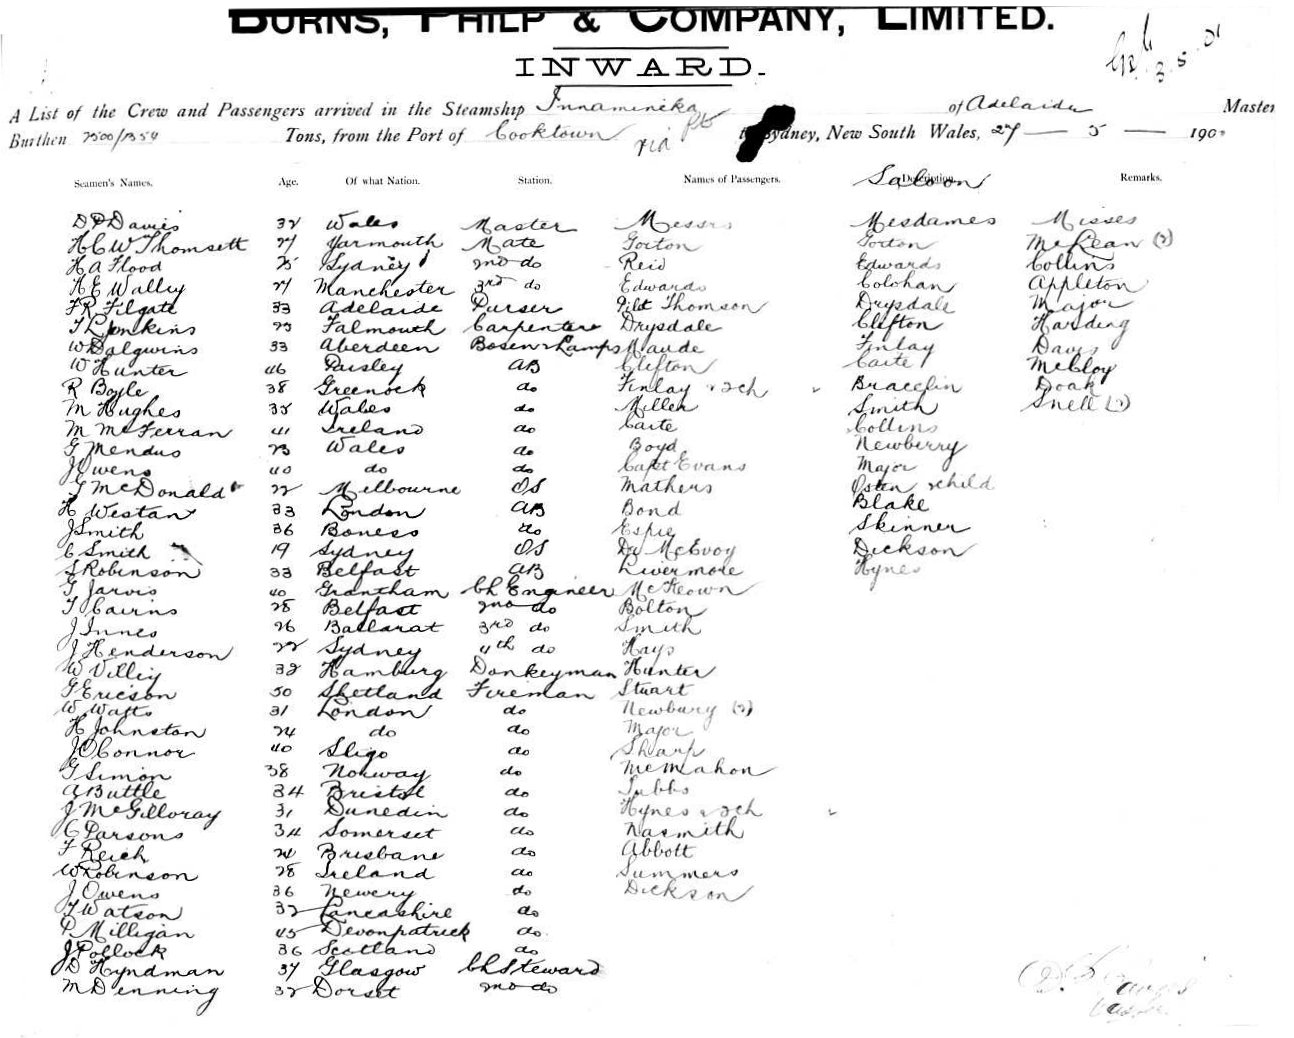 BURNS, PHILP & COMPANY, LIMITED.
INWARD.
3.5.01
A List of the Crew and Passengers arrived in the Steamship Innamincka of Adelaide Master
Burthen 2500/1354 Tons, from the Port of Cooktown via Sydney, New South Wales, 27 — 5 — 190
Seamen's Names. Age. Of what Nation. Station. Names of Passengers. Description. Saloon Remarks.
D P Davies 32 Wales Master Messrs Mesdames Misses
H C W Thomsett 27 Yarmouth Mate Gorton Gorton McLean (2)
H A Flood 25 Sydney 2nd do Reid Edwards Collins
H E Walley 27 Manchester 3rd do Edwards Colohan Appleton
F R Filgate 33 Adelaide Purser Pilot Thomson Drysdale Major
T L Jenkins 23 Falmouth Carpenter Drysdale Clifton Harding
W Dalgwins 33 Aberdeen Bosen & Lamps Maude Finlay Davis
W Hunter 46 Paisley AB Clifton Caite McCloy
R Boyle 38 Greenock do Finlay & 2ch Bracefin Doak
M Hughes 35 Wales do Miller Smith Snell (2)
M McFerran 41 Ireland do Caite Collins
G Mendus 23 Wales do Boyd Newberry
J Owens 40 do do Capt Evans Major
T McDonald 22 Melbourne OS Mathers Osten & child
H Westan 33 London AB Bond Blake
J Smith 36 Boness do Espie Skinner
C Smith 19 Sydney OS Dr McEvoy Dickson
S Robinson 33 Belfast AB Livermore Hynes
T Jarvis 40 Grantham Ch Engineer McKeown
T Cairns 28 Belfast 2nd do Bolton
J Innes 26 Ballarat 3rd do Smith
J Henderson 22 Sydney 4th do Hays
W Villiy 32 Hamburg Donkeyman Hunter
G Ericson 50 Shetland Fireman Stuart
W Watts 31 London do Newbury (2)
H Johnston 24 do do Major
J O'Connor 40 Sligo do Sharp
G Simon 38 Norway do McMahon
A Buttle 34 Bristol do Tubbs
J McGilloray 31 Dunedin do Hynes & 2ch
C Parsons 34 Somerset do Nasmith
F Reich 24 Brisbane do Abbott
W Robinson 28 Ireland do Summers
J Owens 36 Newery do Dickson
T Watson 32 Lancashire do
P Milligan 45 Devonpatrick do
J Pollock 36 Scotland do
J D Hyndman 37 Glasgow Ch Steward
M Denning 32 Dorset 2nd do
D P Davies
Master